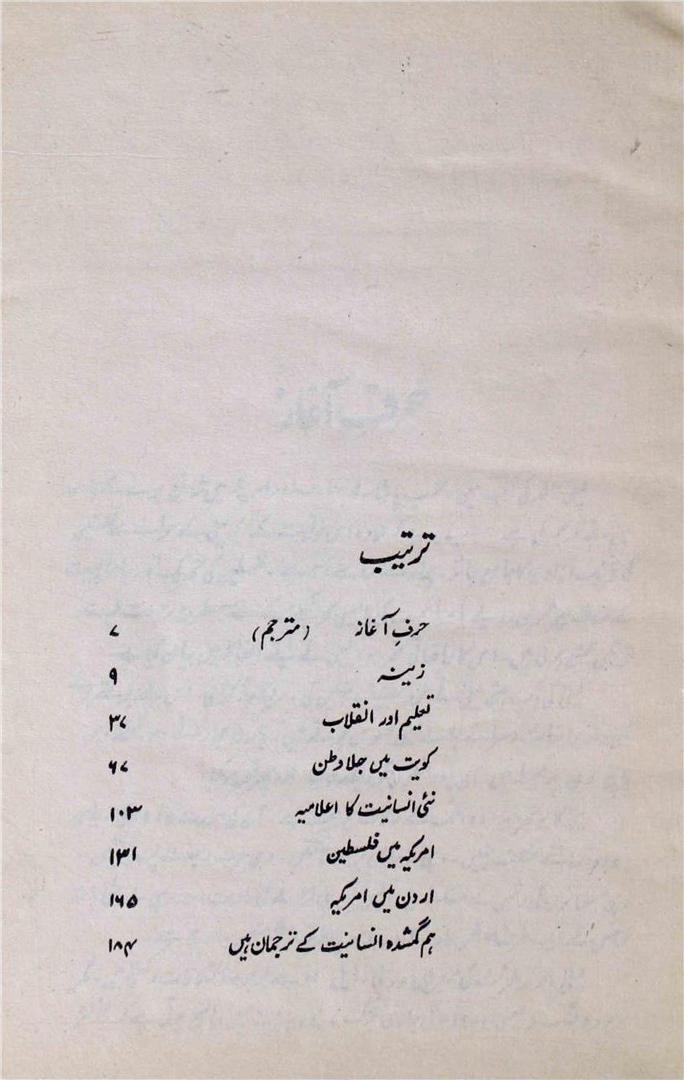 ترتیب
حرفِ آغاز (مترجم) ۷
زینہ ۹
تعلیم اور انقلاب ۳۷
کویت میں جلاوطن ۶۷
نئی انسانیت کا اعلامیہ ۱۰۳
امریکہ میں فلسطین ۱۳۱
اردن میں امریکہ ۱۶۵
ہم گمشدہ انسانیت کے ترجمان ہیں ۱۸۴